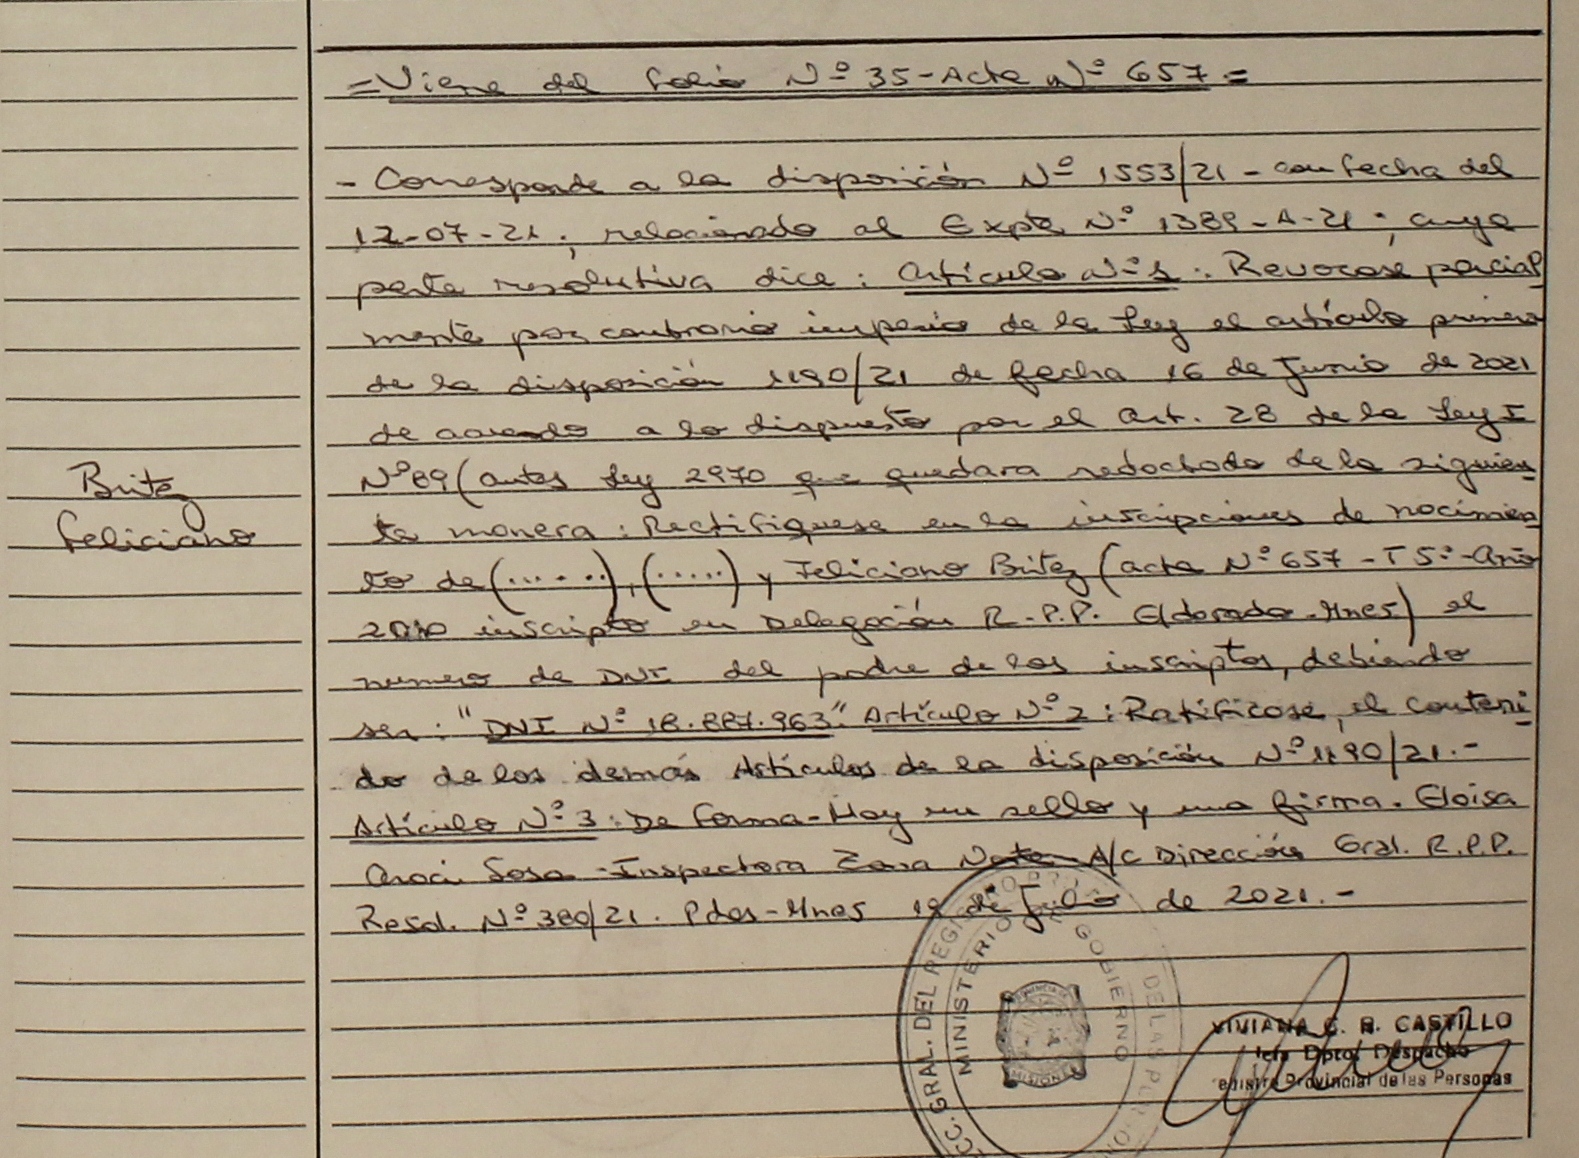 = Viene del folio Nº 35 - Acta Nº 657 =
- Corresponde a la disposición Nº 1553/21 - con fecha del
12-07-21; relacionado al Expte Nº 1389-A-21; cuya
parte resolutiva dice: Artículo Nº 1: Revocase parcial
mente por contrario imperio de la Ley el artículo primero
de la disposición 1190/21 de fecha 16 de Junio de 2021
de acuerdo a lo dispuesto por el Art. 28 de la Ley I
Nº 89 (antes Ley 2970 que quedara redactado de la siguien
Britez
Feliciano
te manera: Rectifiquese en la inscripciones de nacimien
to de (......), (.....) y Feliciano Britez (acta Nº 657 - T 5º - Año
2010 inscripto en Delegación R.P.P. Eldorado - Mnes) el
numero de DNI del padre de los inscriptos, debiendo
ser: "DNI Nº 18.887.963" Artículo Nº 2: Ratificase, el conteni
do de los demás Artículos de la disposición Nº 1190/21.-
Artículo Nº 3: De forma - Hay un sello y una firma. Eloisa
Sosa - Inspectora Zona A/C Dirección Gral. R.P.P.
Resol. Nº 380/21. Pdas - Mnes 19 de Julio de 2021.-
GRAL. DEL REGISTRO DE LAS
MINISTERIO DE GOBIERNO
MISIONES
VIVIANA C. R. CASTILLO
Jefa Dpto. Despacho
egistro Provincial de las Personas